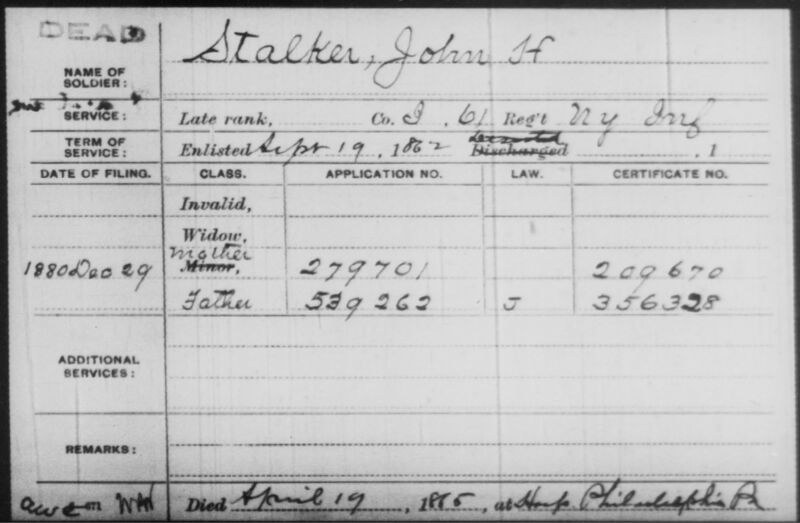 DEAD
Stalker, John H
NAME OF
SOLDIER:
SERVICE: Late rank, Co. I, 61 Reg't Ny Inf
TERM OF
SERVICE: Enlisted Sept 19, 1862 Discharged , 1
DATE OF FILING. CLASS. APPLICATION NO. LAW. CERTIFICATE NO.
Invalid,
Widow,
Mother
1880 Dec 29 Minor, 279701 209670
Father 539262 J 356328
ADDITIONAL
SERVICES:
REMARKS:
Died April 19, 1865, at Hosp Philadelphia Pa